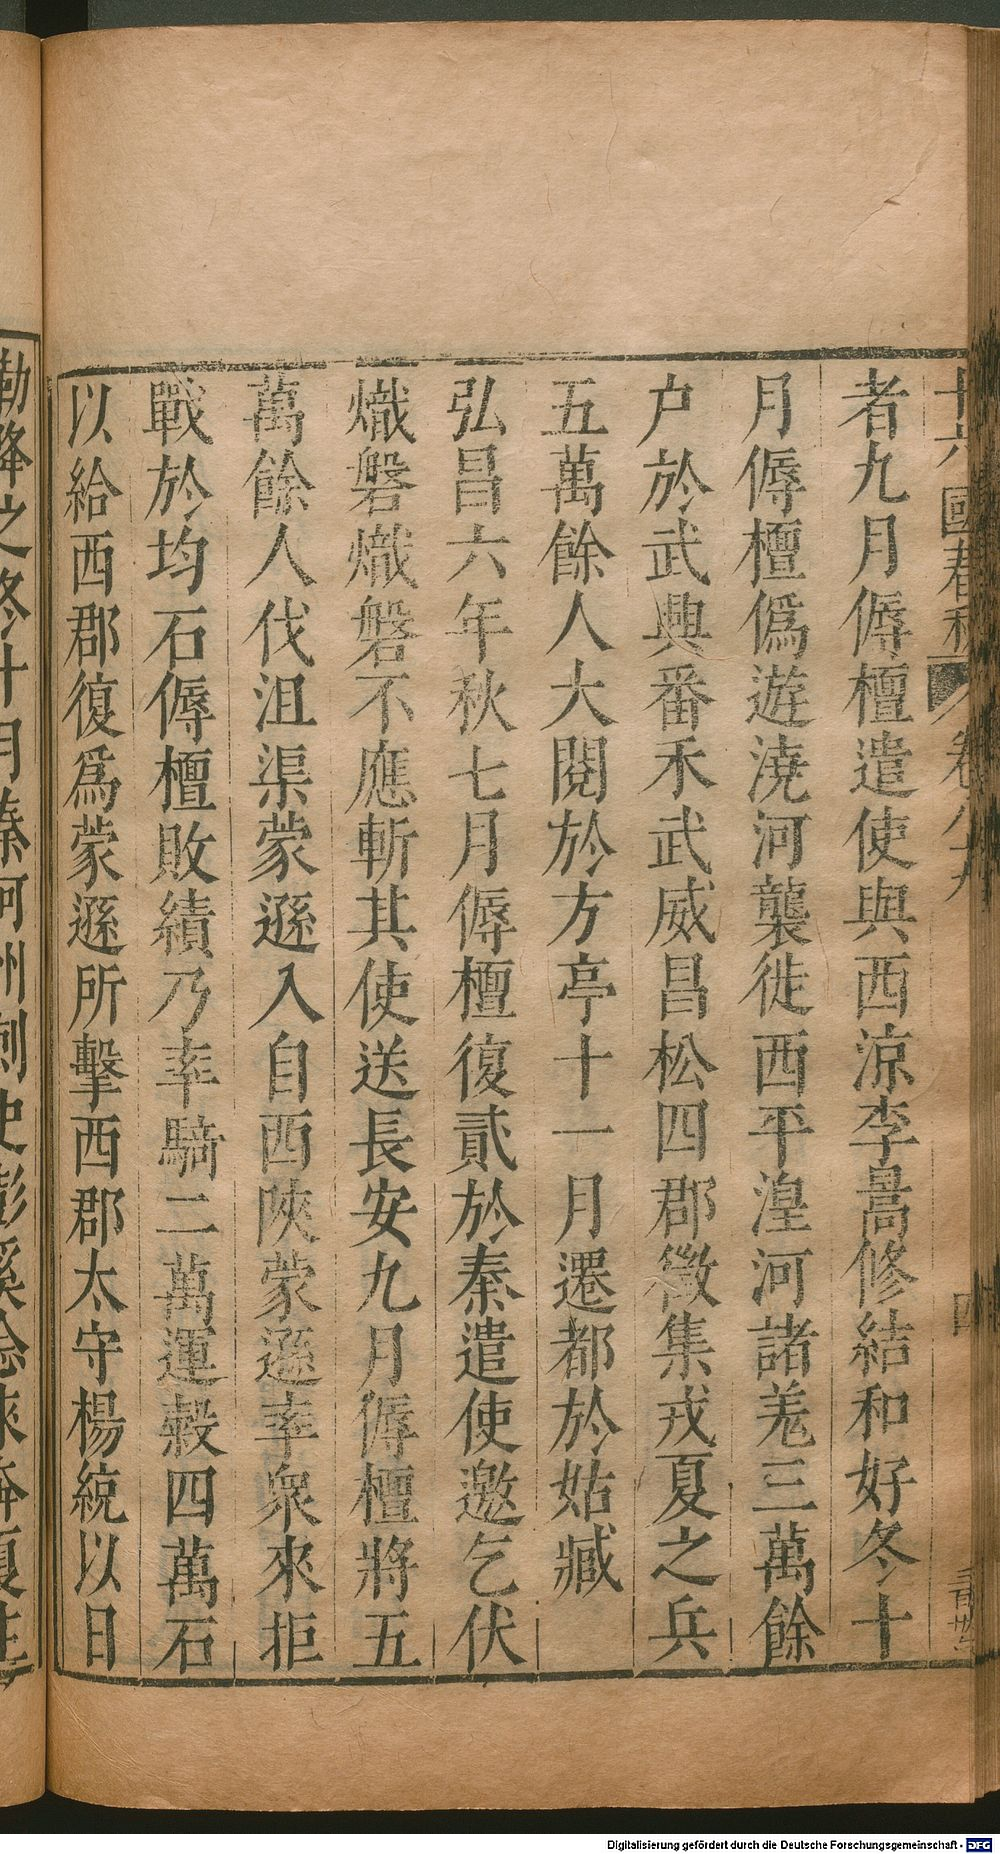 十六國春秋 卷八十九 四
者九月傉檀遣使與西涼李暠修結和好冬十
月傉檀僞遊澆河襲徙西平湟河諸羗三萬餘
户於武興番禾武威昌松四郡徵集戎夏之兵
五萬餘人大閱於方亭十一月遷都於姑臧
弘昌六年秋七月傉檀復貳於秦遣使邀乞伏
熾磐熾磐不應斬其使送長安九月傉檀將五
萬餘人伐沮渠蒙遜入自西陜蒙遜率衆來拒
戰於均石傉檀敗績乃率騎二萬運穀四萬石
以給西郡復爲蒙遜所擊西郡太守楊統以日
勒降之冬十月秦河州刺史彭奚念來奔夏
Digitalisierung gefördert durch die Deutsche Forschungsgemeinschaft - DFG